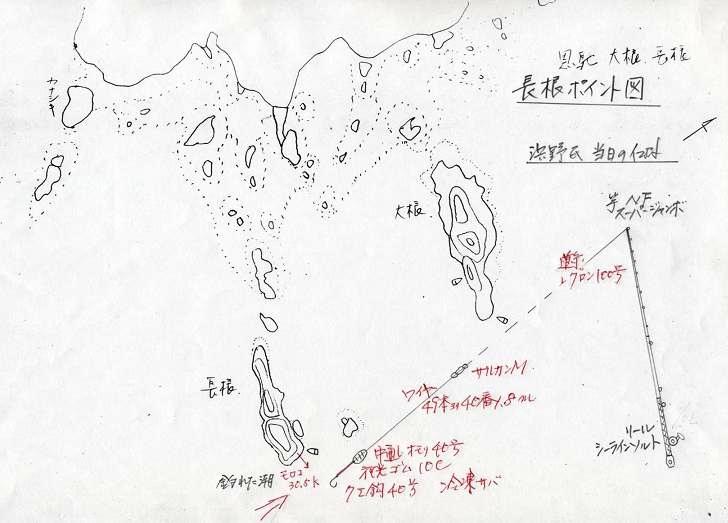 恩馳 大根 長根
長根ポイント図
浜野氏 当日の仕掛
カナシキ
竿 NF
スーパージャンボ
大根
道糸
レグロン100号
サルカンM
ワイヤー
49本ヨリ40番1.8m
長根
リール
シーラインソルト
中通しオモリ40号
夜光ゴム10C
クエ鈎40号 冷凍サバ
釣れた潮
モロコ
30.5K